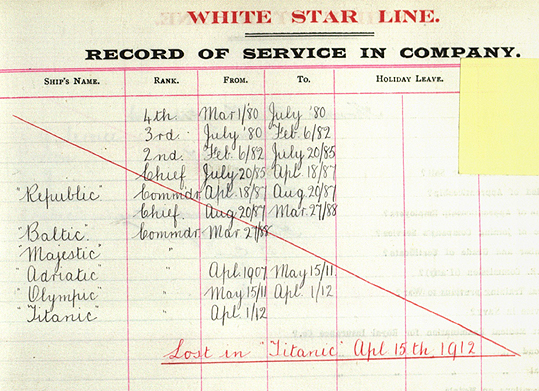 WHITE STAR LINE.
RECORD OF SERVICE IN COMPANY.
SHIP'S NAME. RANK. FROM. TO. HOLIDAY LEAVE.
4th Mar 1/'80 July '80
3rd. July '80 Feb. 6/82
2nd. Feb. 6/82 July 20/85
Chief July 20/85 Apl. 18/87
"Republic" Commdr. Apl. 18/87 Aug. 20/87
Chief. Aug. 20/87 Mar. 27/88
"Baltic". Commdr. Mar. 27/88
"Majestic" "
"Adriatic" " Apl. 1907 May 15/11
"Olympic" " May 15/11 Apl. 1/12
"Titanic" " Apl. 1/12
Lost in "Titanic" Apl 15th 1912